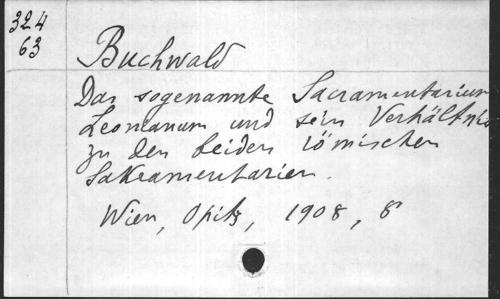 324
63
Buchwald
Das sogenannte Sacramentarium
Leonianum und sein Verhältnis
zu den beiden römischen
Sakramentarien.
Wien, Opitz, 1908, 8